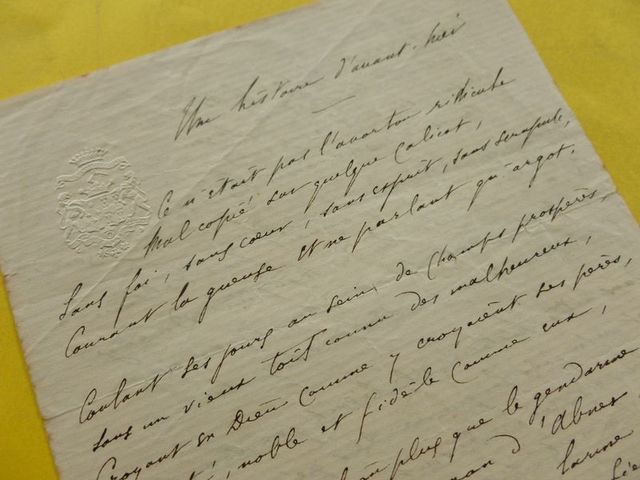 Une histoire d'avant-hier
Ce n'était pas l'avorton ridicule
Mal copié sur quelque calicot,
Sans foi, sans cœur, sans esprit, sans scrupule,
Courant la gueuse et ne parlant qu'argot.
Coulant ses jours au sein de champs prospères,
Sous un vieux toit connu des malheureux,
Croyant en Dieu comme y croyaient ses pères,
noble et fidèle comme eux,
plus que le gendarme
d'Abner
larme